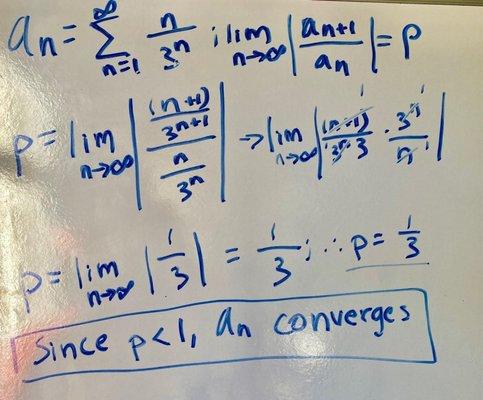 aₙ = ∑_{n=1}^{∞} n/3ⁿ ; lim_{n→∞} |aₙ₊₁/aₙ| = ρ
ρ = lim_{n→∞} |((n+1)/3ⁿ⁺¹)/(n/3ⁿ)| → lim_{n→∞} |(n+1)/(3ⁿ·3) · 3ⁿ/n|
ρ = lim_{n→∞} |1/3| = 1/3; ∴ ρ = 1/3
Since ρ<1, aₙ converges